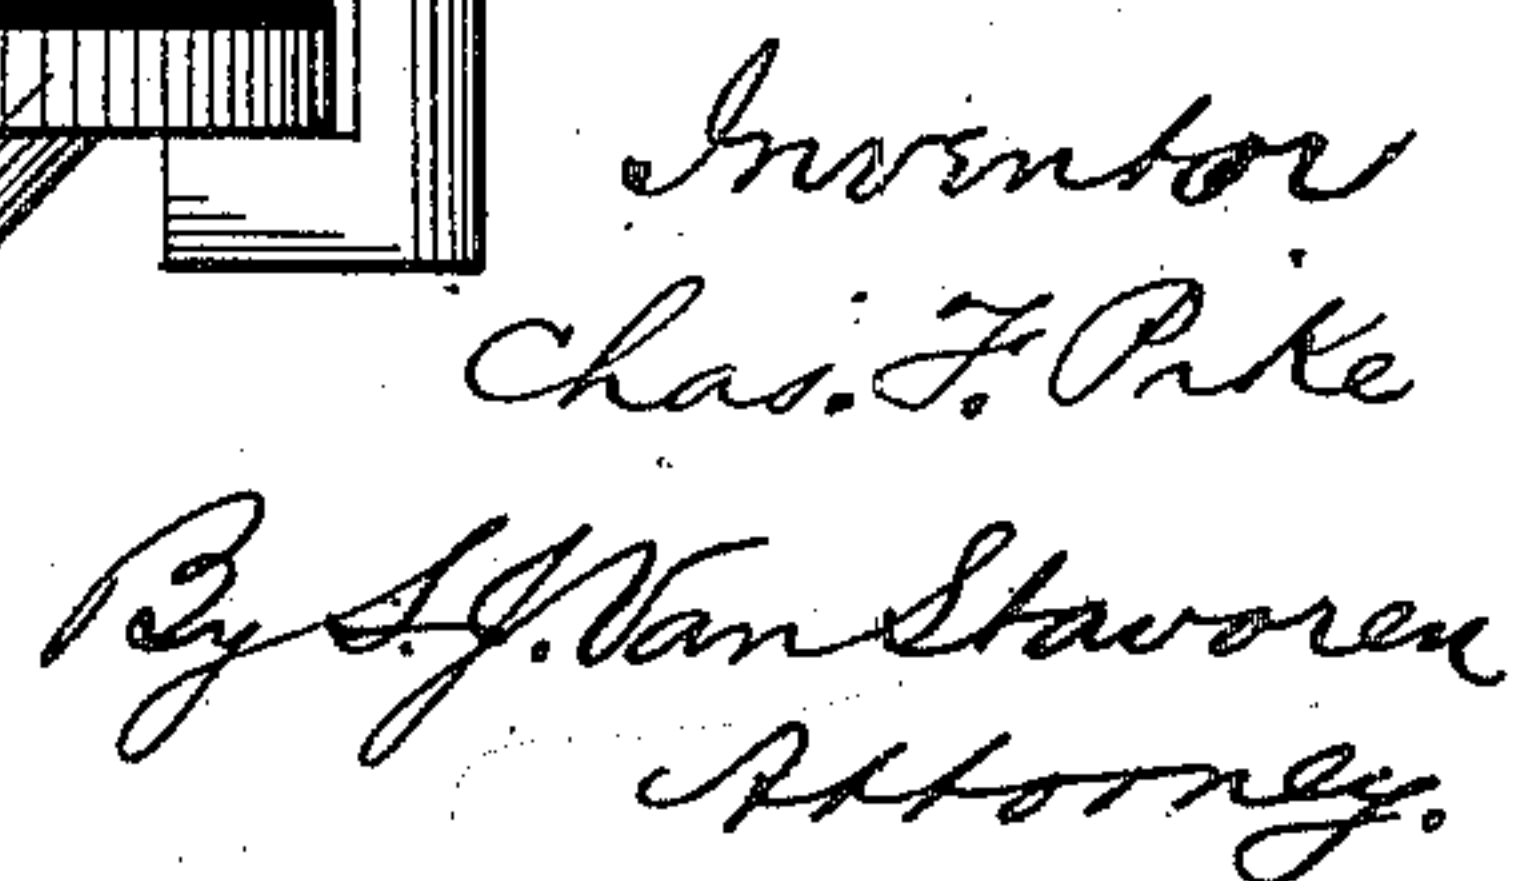 Inventor
Chas. F. Pike
By S. J. Van Stavoren
Attorney.